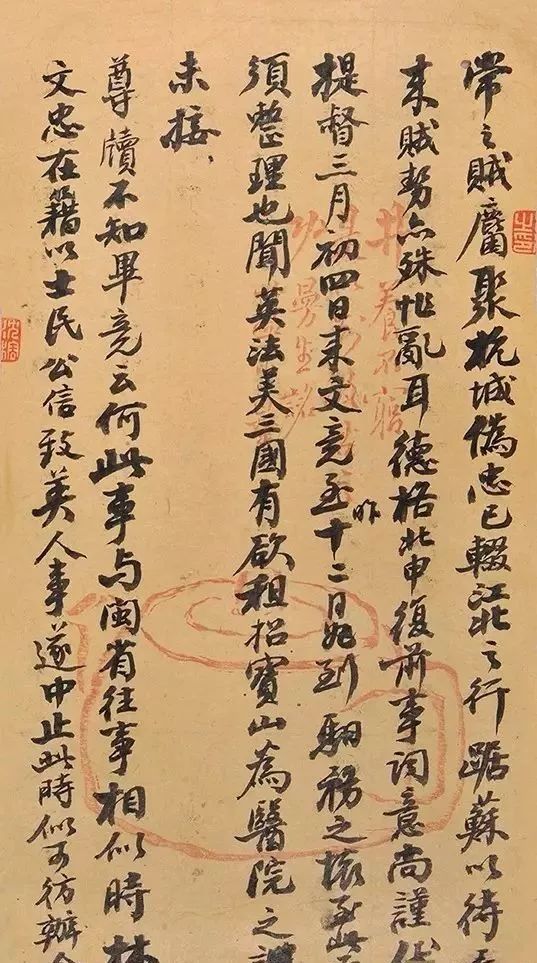 常之賊麕聚杭城偽忠已輟江北之行踞蘇以待
來賊勢亦殊亂耳德格此申復前事詞意尚謹
提督三月初四日來文竟至昨十二日始到駟務之壞至此
須整理也聞英法美三國有欲租招寶山為醫院之
未接
尊牘不知畢竟云何此事與閩省往事相似時林
文忠在籍以士民公信致英人事遂中止此時似可彷辦
井養不窮
曼生銘